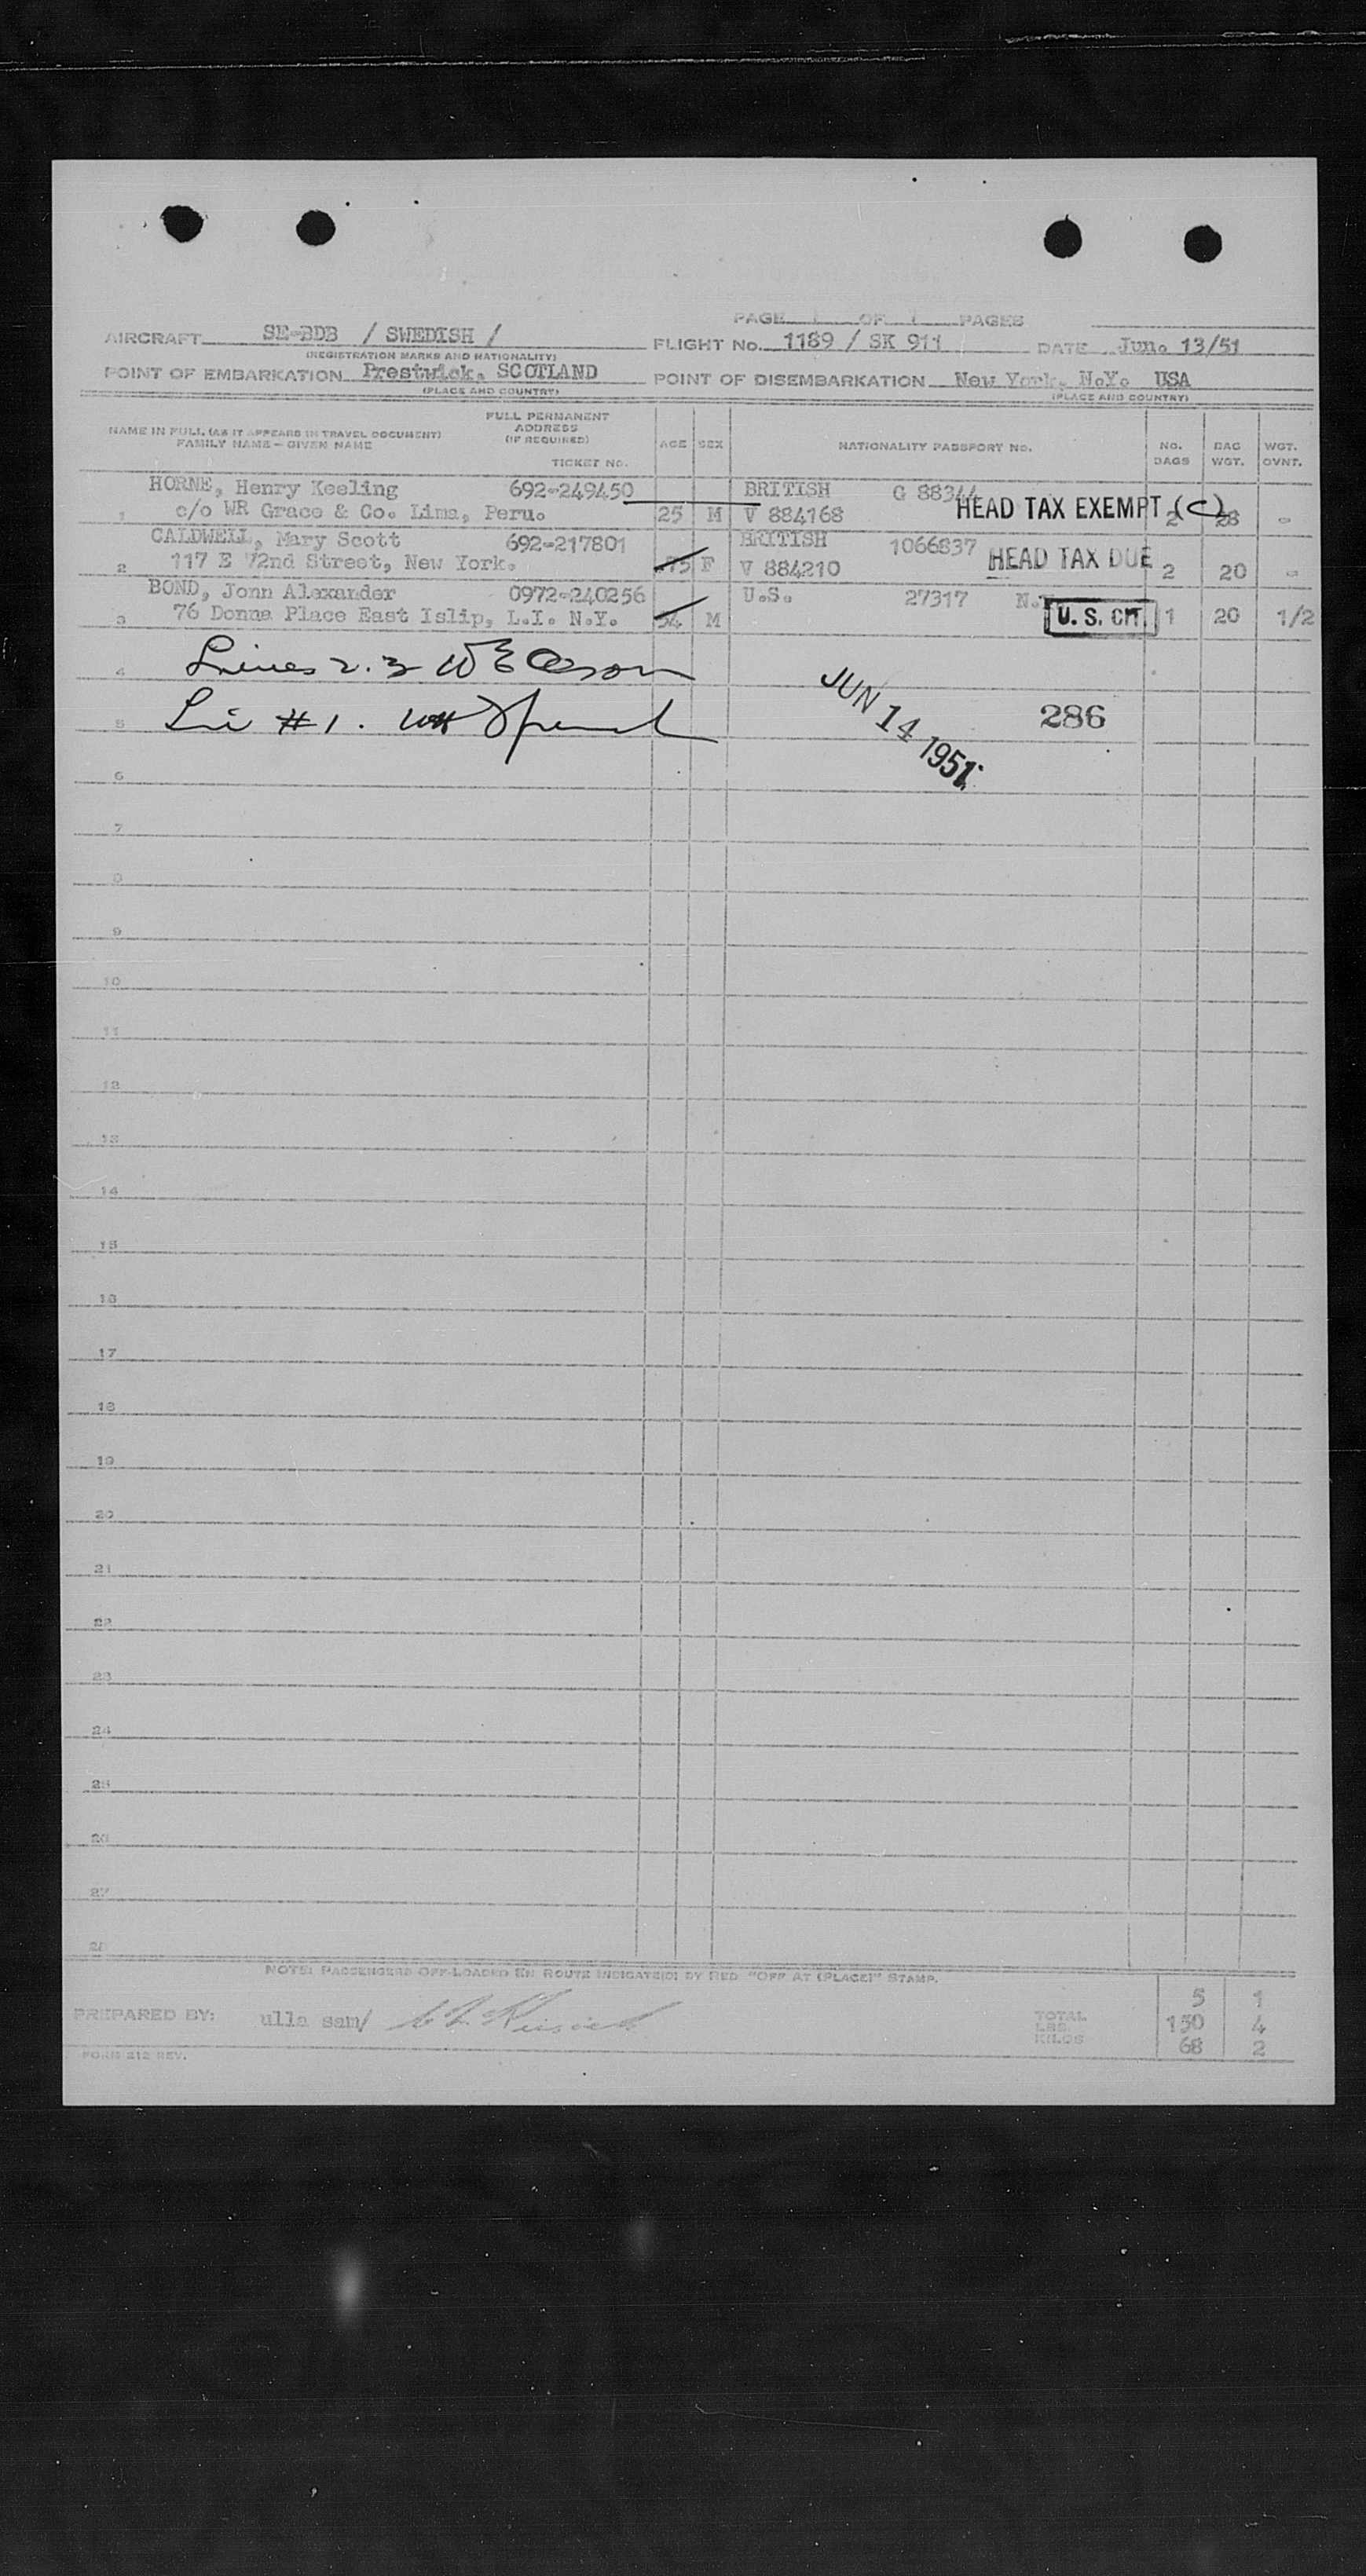 PAGE 1 OF 1 PAGES
AIRCRAFT SE-BDB / SWEDISH / FLIGHT No. 1189 / SK 911 DATE Jun. 13/51
(REGISTRATION MARKS AND NATIONALITY)
POINT OF EMBARKATION Prestwick, SCOTLAND POINT OF DISEMBARKATION New York, N.Y. USA
(PLACE AND COUNTRY) (PLACE AND COUNTRY)
NAME IN FULL (AS IT APPEARS IN TRAVEL DOCUMENT) FAMILY NAME - GIVEN NAME FULL PERMANENT ADDRESS (IF REQUIRED) TICKET No. AGE SEX NATIONALITY PASSPORT NO. NO. BAGS BAG WGT. WGT. OVNT.
HORNE, Henry Keeling 692-249450 BRITISH G 88344
1 c/o WR Grace & Co. Lima, Peru. 25 M V 884168 HEAD TAX EXEMPT (C) 2 28 -
CALDWELL, Mary Scott 692-217801 BRITISH 1066837
2 117 E 72nd Street, New York. 75 F V 884210 HEAD TAX DUE 2 20 -
BOND, Jonn Alexander 0972-240256 U.S. 27317
3 76 Donna Place East Islip, L.I. N.Y. 54 M U. S. CIT. 1 20 1/2
4 Lines 2.3
5 #1.
JUN 14 1951
286
6
7
8
9
10
11
12
13
14
15
16
17
18
19
20
21
22
23
24
25
26
27
28
NOTE: PASSENGERS OFF-LOADED EN ROUTE INDICATE(D) BY RED "OFF AT (PLACE)" STAMP.
5 1
PREPARED BY: ulla sam/ TOTAL LBS. 150 4
KILOS 68 2
FORM 212 REV.